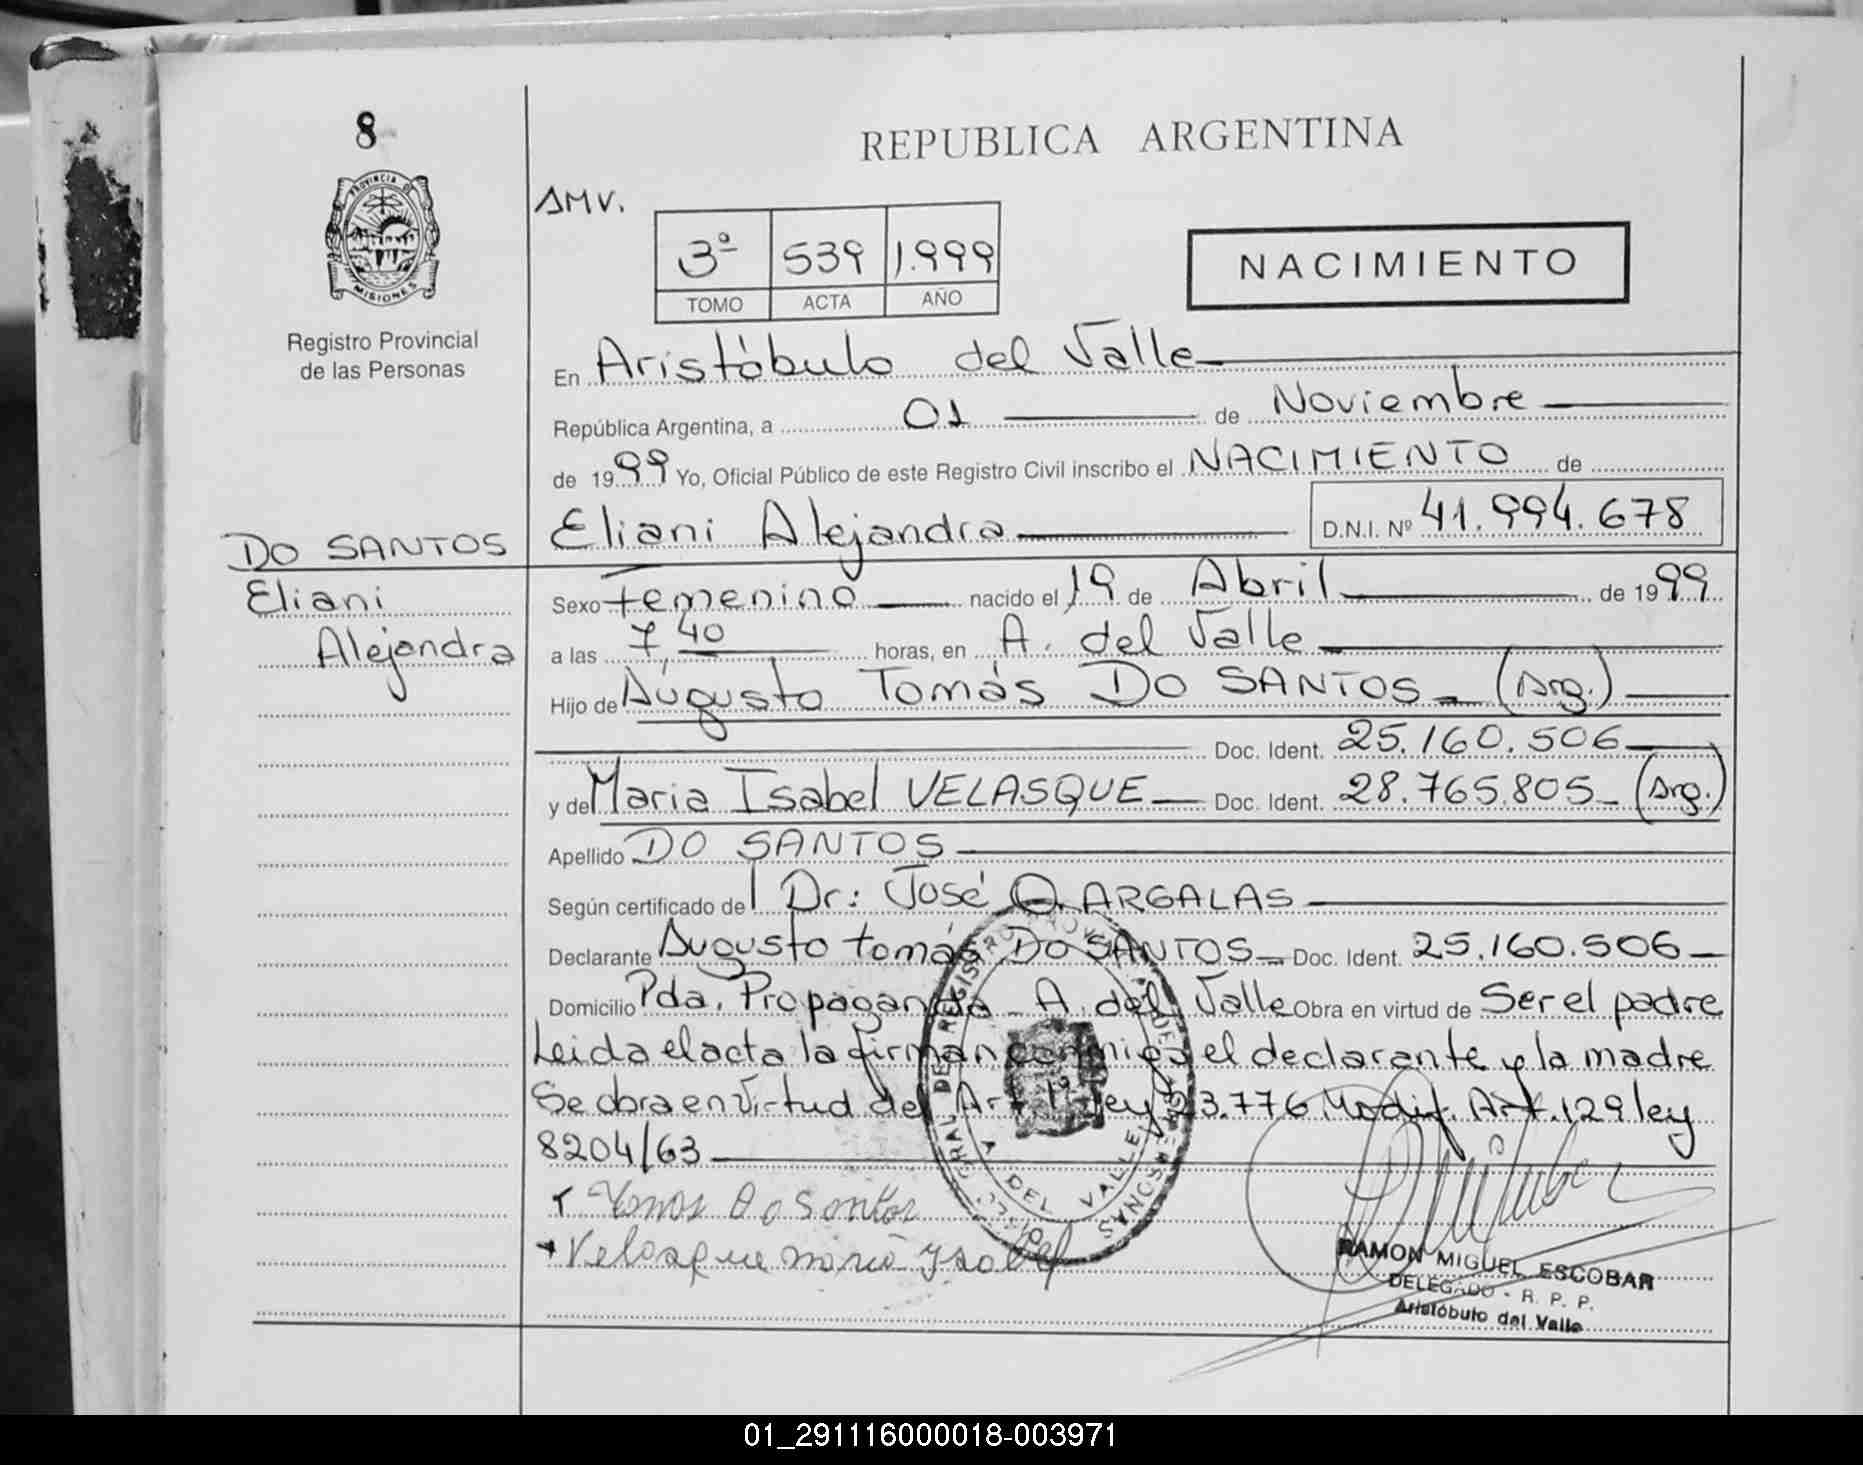 8
REPUBLICA ARGENTINA
AMV.
3ª 539 1.999
TOMO ACTA AÑO
NACIMIENTO
PROVINCIA DE
MISIONES
Registro Provincial
de las Personas
En Aristóbulo del Valle
República Argentina, a 01 de Noviembre
de 1999 Yo, Oficial Público de este Registro Civil inscribo el NACIMIENTO de
Eliani Alejandra D.N.I. Nº 41.994.678
DO SANTOS
Eliani
Alejandra
Sexo Femenino nacido el 19 de Abril de 1999
a las 7,40 horas, en A. del Valle
Hijo de Augusto Tomás DO SANTOS (Arg.)
Doc. Ident. 25.160.506
y de Maria Isabel VELASQUE Doc. Ident. 28.765.805 (Arg.)
Apellido DO SANTOS
Según certificado del Dr: José O. ARGALAS
Declarante Augusto tomás DO SANTOS Doc. Ident. 25.160.506
Domicilio Pda. Propaganda - A. del Valle Obra en virtud de Ser el padre
Leida el acta la firman conmigo el declarante y la madre
Se obra en virtud del Art. 1º ley 23.776 Modif. Art. 129 ley
8204/63
Tomas Do Santos
Velasque maria ysabel
A DEL VALLE
RAMON MIGUEL ESCOBAR
DELEGADO - R. P. P.
Aristóbulo del Valle
01_291116000018-003971